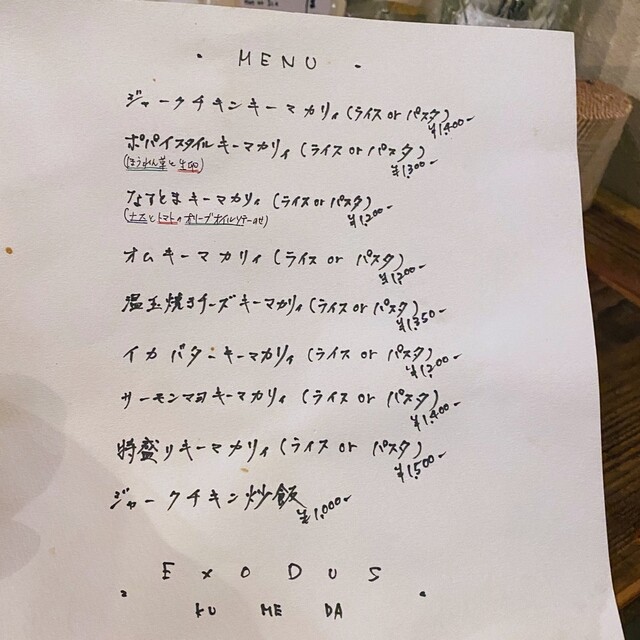 ・ MENU ・
ジャークチキンキーマカリィ(ライス or パスタ) ¥1400-
ポパイスタイルキーマカリィ(ライス or パスタ) ¥1300-
(ほうれん草と生卵)
なすとまキーマカリィ(ライス or パスタ) ¥1,200-
(ナスとトマトのオリーブオイルソテーのせ)
オムキーマカリィ(ライス or パスタ) ¥1,200-
温玉焼きチーズキーマカリィ(ライス or パスタ) ¥1,350-
イカバターキーマカリィ(ライス or パスタ) ¥1,200-
サーモンマヨキーマカリィ(ライス or パスタ) ¥1,400-
特盛りキーマカリィ(ライス or パスタ) ¥1,500-
ジャークチキン炒飯 ¥1,000-
EXODUS
・ KU ME DA ・